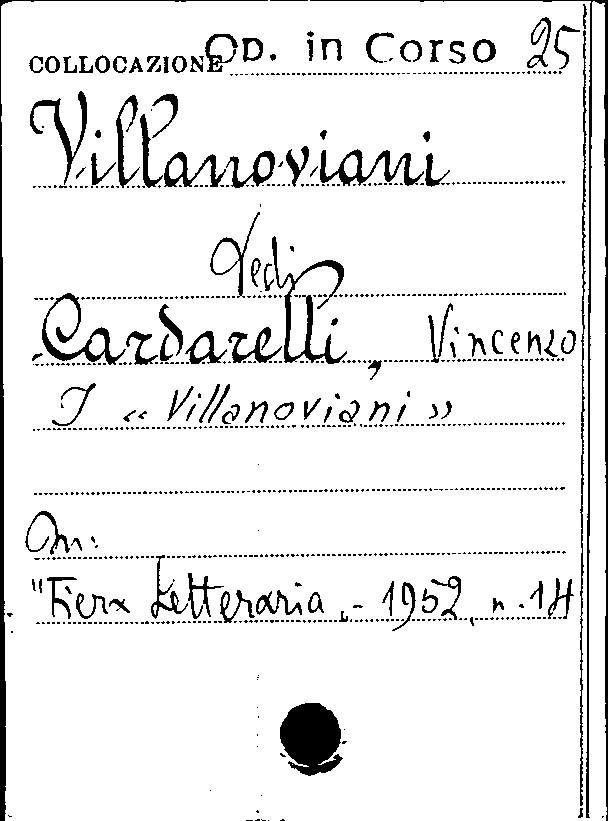 COLLOCAZIONE OD. in Corso 25
Villanoviani
Vedi
Cardarelli, Vincenzo
I « Villanoviani »
In:
"Fiera Letteraria, - 1952, n. 14